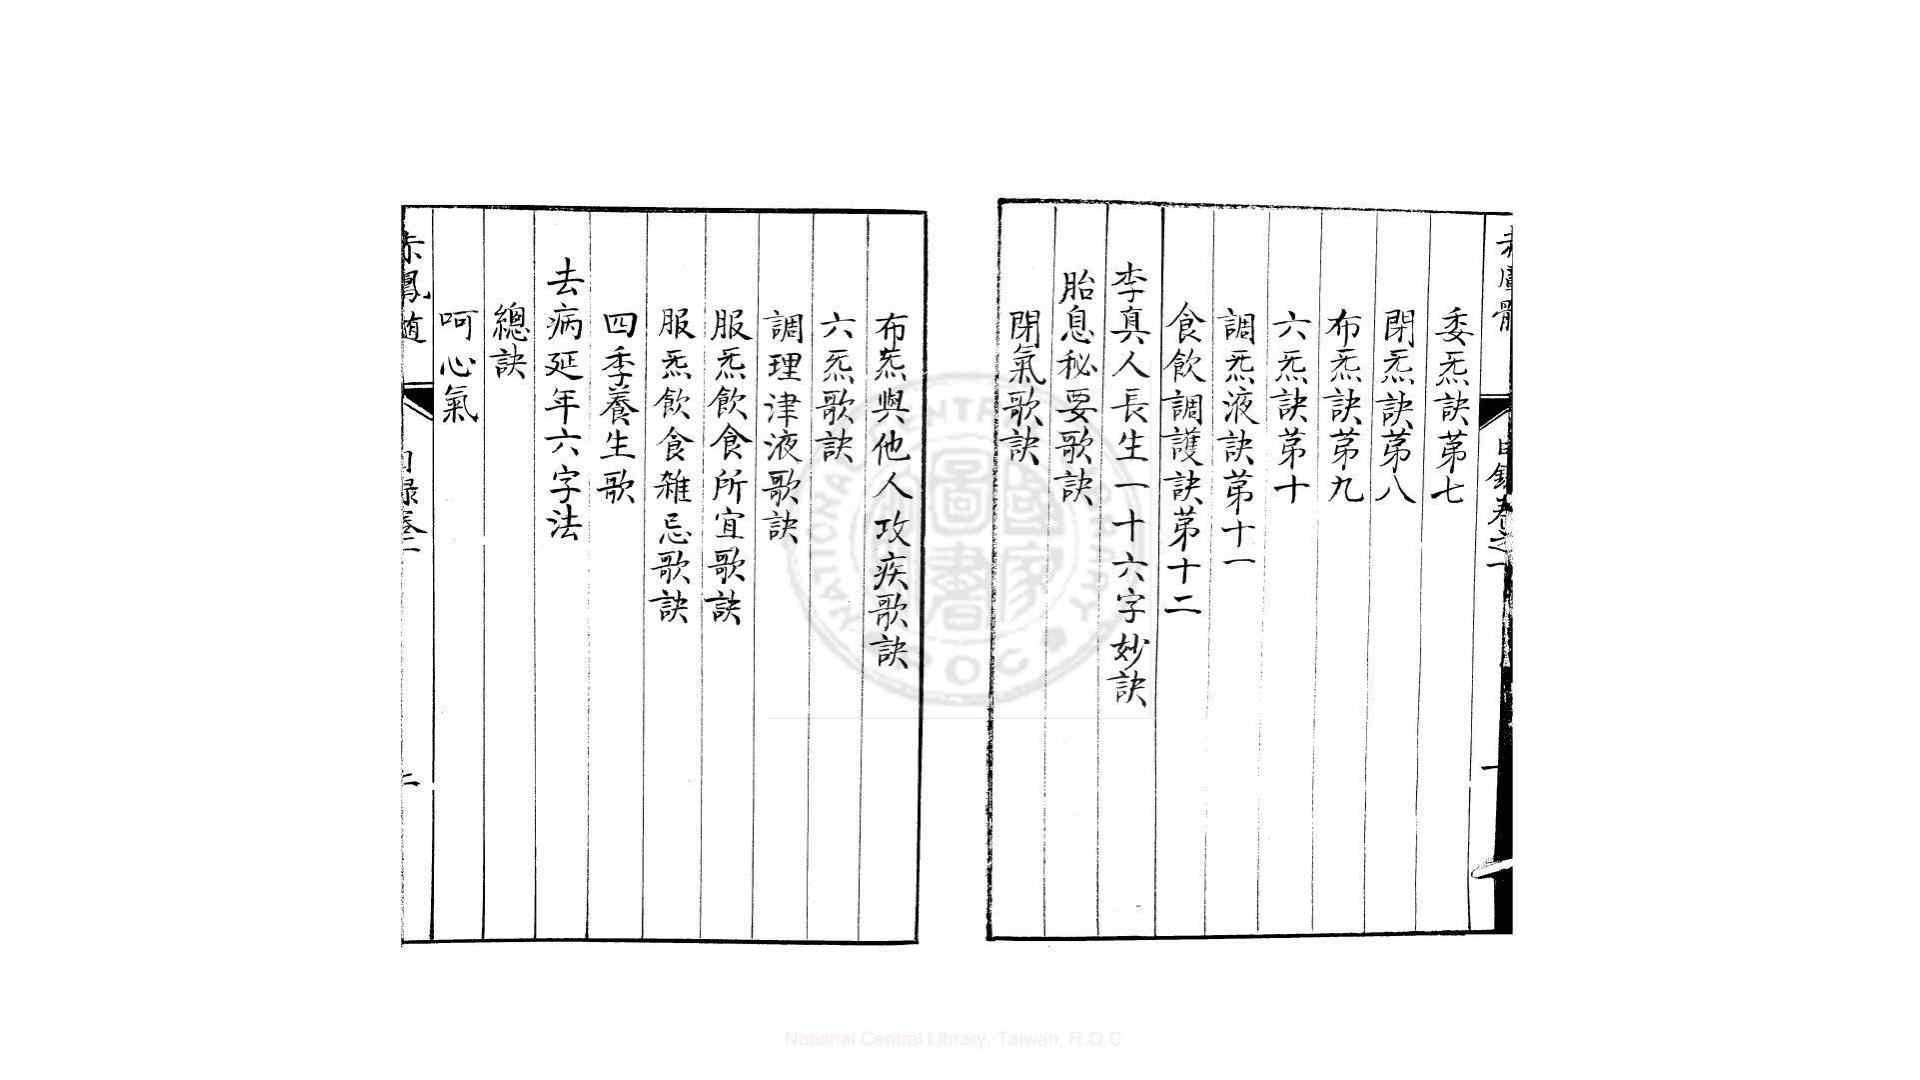 赤鳳髓
目錄卷之一
一
委炁訣苐七
閉炁訣苐八
布炁訣苐九
六炁訣苐十
調炁液訣苐十一
食飲調護訣苐十二
李真人長生一十六字妙訣
胎息秘要歌訣
閉氣歌訣
布炁與他人攻疾歌訣
六炁歌訣
調理津液歌訣
服炁飲食所宜歌訣
服炁飲食雜忌歌訣
四季養生歌
去病延年六字法
總訣
呵心氣
赤鳳髓
目錄卷一
二
國家圖書館
NATIONAL CENTRAL LIBRARY
R O C
National Central Library, Taiwan, R.O.C